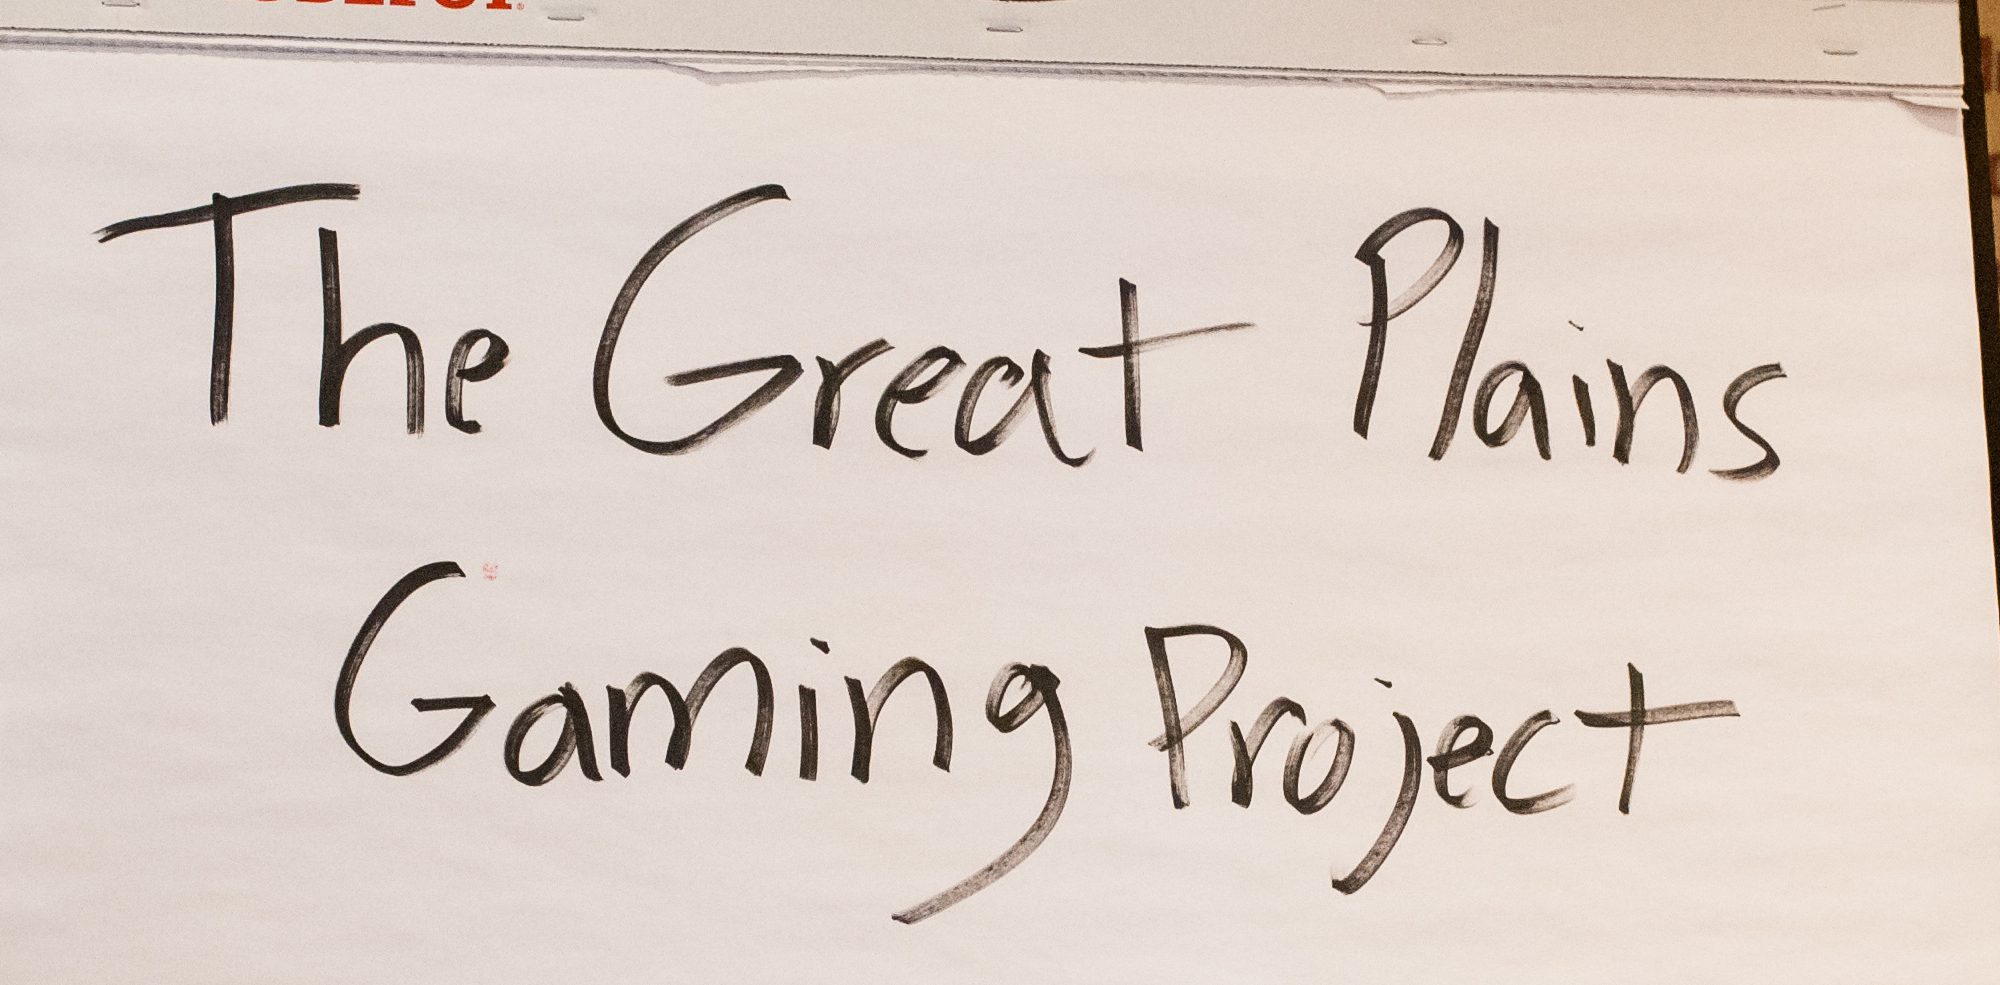 The Great Plains
Gaming Project